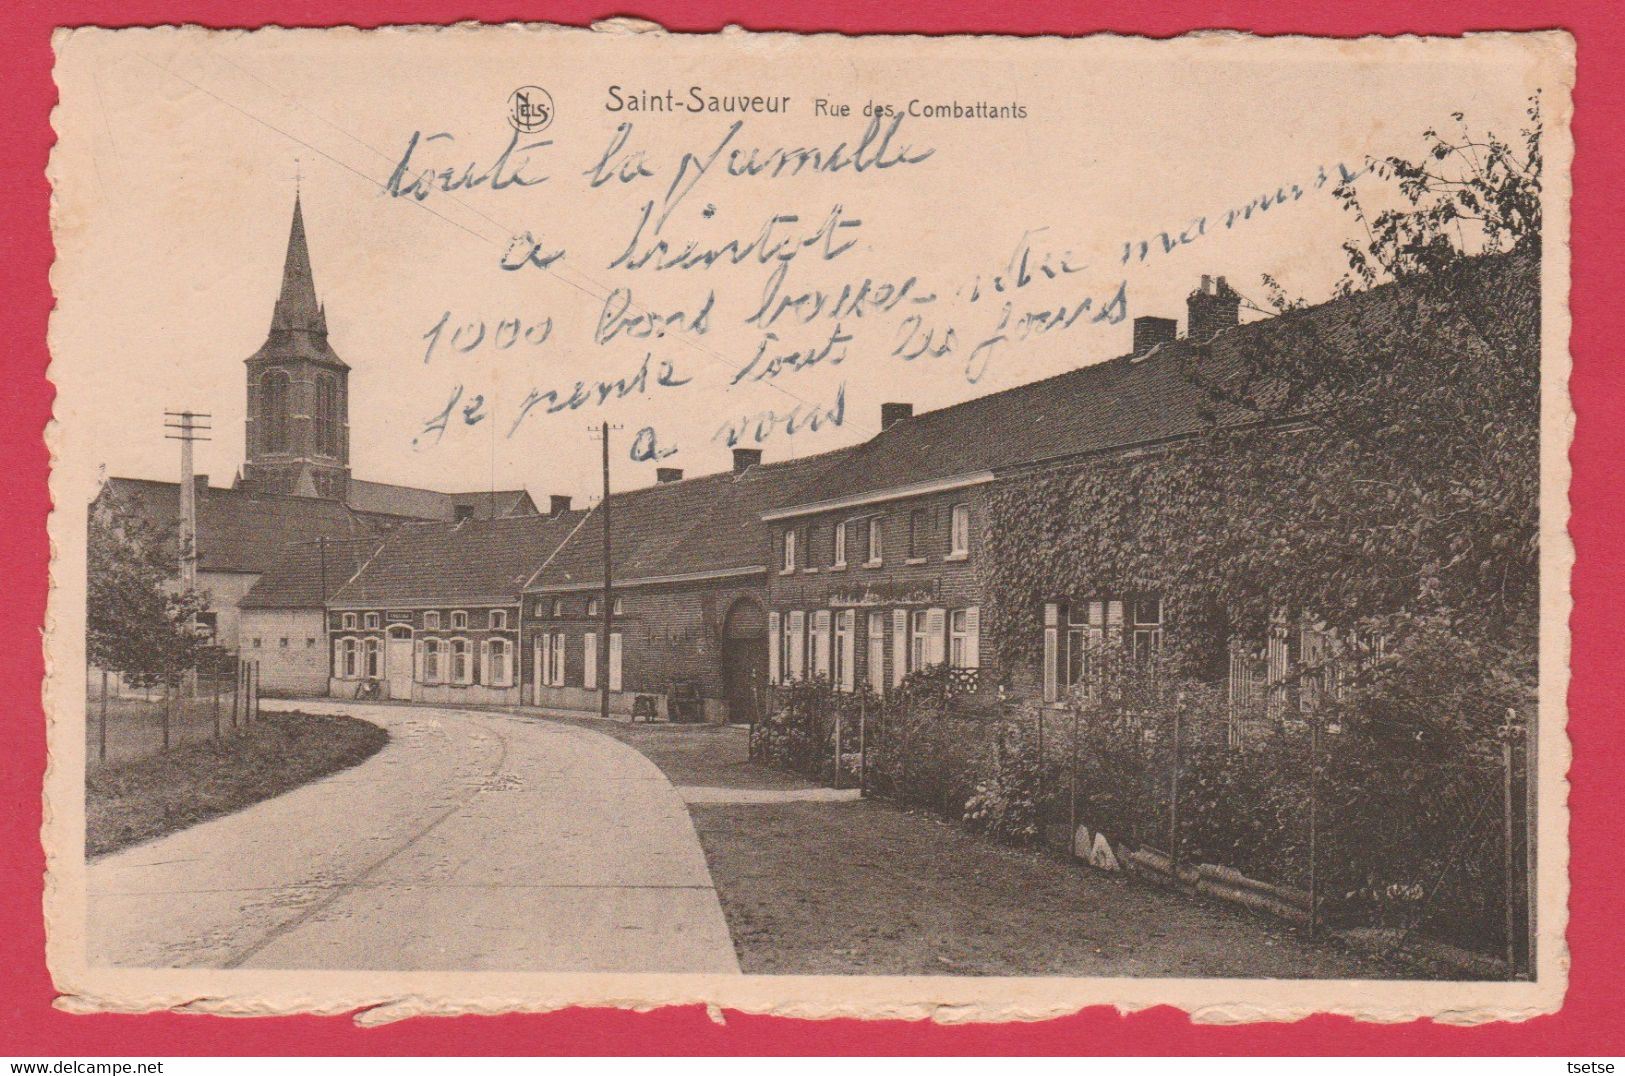 NELS
Saint-Sauveur Rue des Combattants
toute la famille
a bientot
1000 bons baiser votre maman
Je pense tout les jours
a vous
tsetse